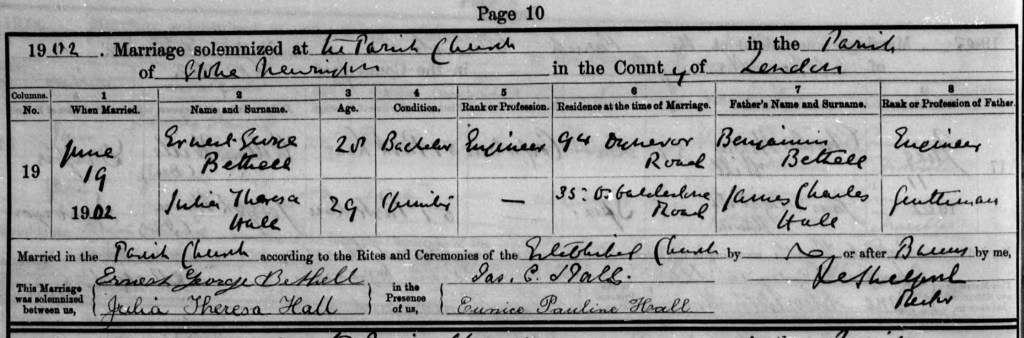 Page 10
1902. Marriage solemnized at the Parish Church in the Parish
of Stoke Newington in the County of London
Columns. 1 2 3 4 5 6 7 8
No. When Married. Name and Surname. Age. Condition. Rank or Profession. Residence at the time of Marriage. Father's Name and Surname. Rank or Profession of Father.
19
June 19 1902
Ernest George
Bethell
28 Bachelor Engineer
Road
Benjamin
Bethell
Engineer
Julia Theresa
Hall
29 —
Road
James Charles
Hall
Gentleman
Married in the Parish Church according to the Rites and Ceremonies of the Established Church by or after Banns by me,
This Marriage was solemnized between us,
Ernest George Bethell
Julia Theresa Hall
in the Presence of us,
Jas. C. Hall.
Eunice Pauline Hall
Rector